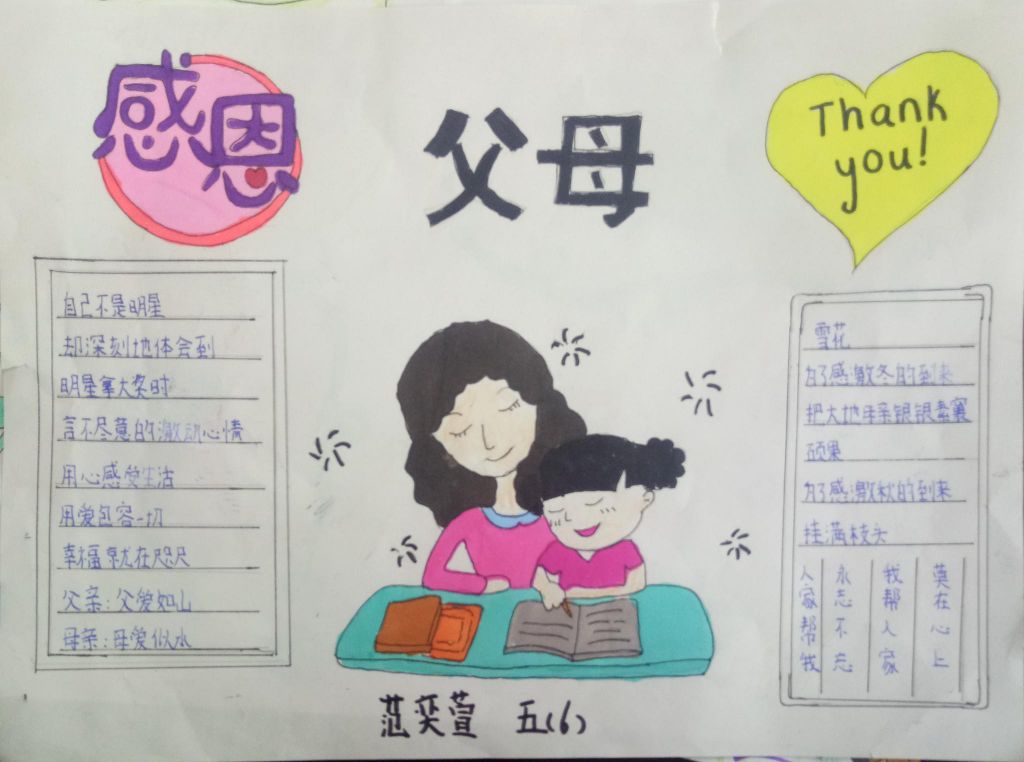 感恩
父母
Thank
you!
自己不是明星
却深刻地体会到
明星拿大奖时
言不尽意的激动心情
用心感受生活
用爱包容一切
幸福就在咫尺
父亲:父爱如山
母亲:母爱似水
雪花
为了感激冬的到来
把大地母亲银银素裹
硕果
为了感激秋的到来
挂满枝头
人家帮我
永志不忘
我帮人家
莫在心上
范奕萱 五(6)